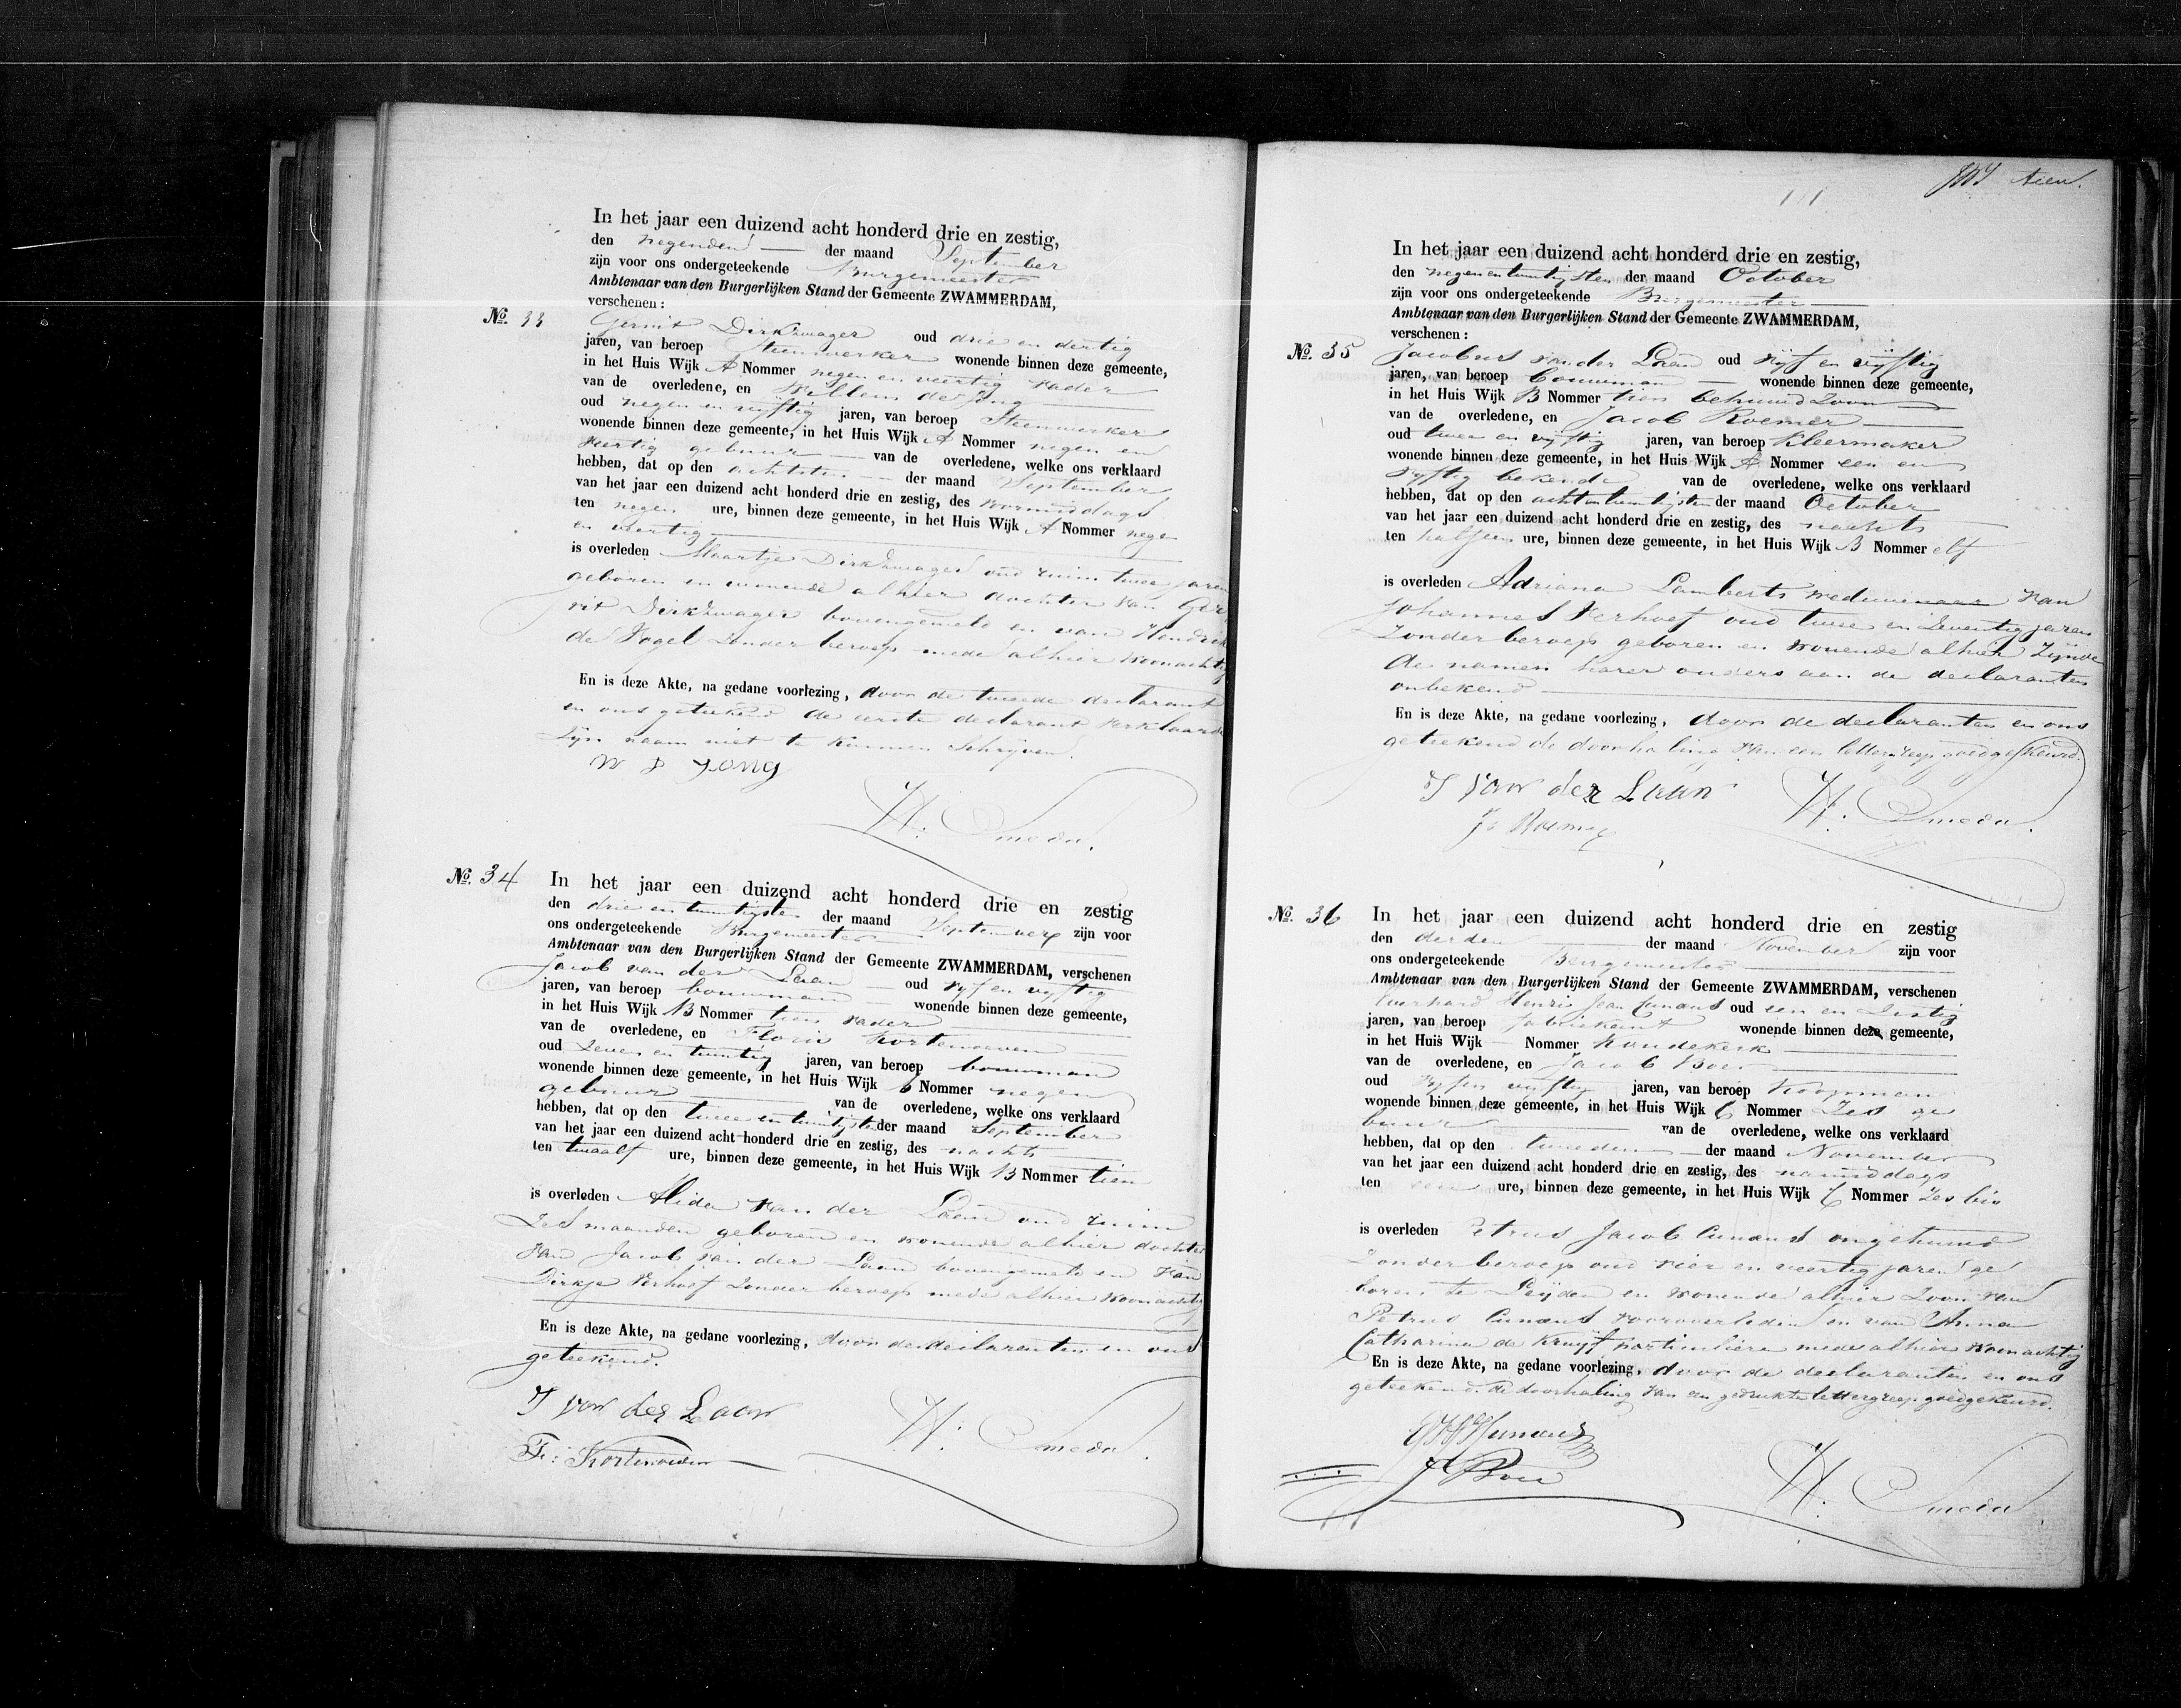 In het jaar een duizend acht honderd drie en zestig,
den negenden der maand September
zijn voor ons ondergeteekende Burgemeester
Ambtenaar van den Burgerlijken Stand der Gemeente ZWAMMERDAM,
verschenen:
No. 33 Gerrit Dirkzwager oud drie en dertig
jaren, van beroep Steenwerker wonende binnen deze gemeente,
in het Huis Wijk A Nommer negen en veertig vader
van de overledene, en Willem de Jong
oud negen en vijftig jaren, van beroep Steenwerker
wonende binnen deze gemeente, in het Huis Wijk A Nommer negen en
veertig gebuur van de overledene, welke ons verklaard
hebben, dat op den achtsten der maand September
van het jaar een duizend acht honderd drie en zestig, des voormiddags
ten negen ure, binnen deze gemeente, in het Huis Wijk A Nommer negen
en veertig
is overleden Maartje Dirkzwager oud ruim twee jaren
geboren en wonende alhier dochter van Ger
rit Dirkzwager bovengemeld en van Hendrika
de Vogel zonder beroep mede alhier woonachtig
En is deze Akte, na gedane voorlezing, door de tweede declarant
en ons geteekend de eerste declarant verklaarde
zijn naam niet te kunnen schrijven
W D Jong
H. Smeda.
No. 34 In het jaar een duizend acht honderd drie en zestig
den drie en twintigsten der maand September zijn voor
ons ondergeteekende Burgemeester
Ambtenaar van den Burgerlijken Stand der Gemeente ZWAMMERDAM, verschenen
Jacob van der Laan oud vyf en vyftig
jaren, van beroep bouwman wonende binnen deze gemeente,
in het Huis Wijk B Nommer tien vader
van de overledene, en Floris Kortenoeven
oud zeven en twintig jaren, van beroep bouwman
wonende binnen deze gemeente, in het Huis Wijk B Nommer negen
gebuur van de overledene, welke ons verklaard
hebben, dat op den twee en twintigsten der maand September
van het jaar een duizend acht honderd drie en zestig, des nachts
ten twaalf ure, binnen deze gemeente, in het Huis Wijk B Nommer tien
is overleden Alida van der Laan oud ruim
zes maanden geboren en wonende alhier dochter
van Jacob van der Laan bovengemeld en van
Dirkje Verhoef zonder beroep mede alhier woonachtig
En is deze Akte, na gedane voorlezing, door de declaranten en ons
geteekend.
J van der Laan
H. Smeda
F: Kortenoeven
111
In het jaar een duizend acht honderd drie en zestig,
den negenentwintigsten der maand October
zijn voor ons ondergeteekende Burgemeester
Ambtenaar van den Burgerlijken Stand der Gemeente ZWAMMERDAM,
verschenen:
No. 35 Jacobus van der Laan oud vijf en vijftig
jaren, van beroep bouwman wonende binnen deze gemeente,
in het Huis Wijk B Nommer tien behuwdzoon
van de overledene, en Jacob Roemer
oud twee en vijftig jaren, van beroep Kleermaker
wonende binnen deze gemeente, in het Huis Wijk A Nommer een en
vyftig bekende van de overledene, welke ons verklaard
hebben, dat op den achtentwintigsten der maand October
van het jaar een duizend acht honderd drie en zestig, des nachts
ten halfeen ure, binnen deze gemeente, in het Huis Wijk B Nommer elf
is overleden Adriana Lamberts weduwenaar van
Johannes Verhoef oud twee en zeventig jaren
zonder beroep geboren en wonende alhier zijnde
de namen harer ouders aan de declaranten
onbekend
En is deze Akte, na gedane voorlezing, door de declaranten en ons
geteekend de doorhaling van een lettergreep goedgekeurd.
J van der Laan
H. Smeda.
Jb Roemer
No. 36 In het jaar een duizend acht honderd drie en zestig
den derden der maand November zijn voor
ons ondergeteekende Burgemeester
Ambtenaar van den Burgerlijken Stand der Gemeente ZWAMMERDAM, verschenen
Everhard Henri Jean Cunæus oud een en zestig
jaren, van beroep fabriekant wonende binnen deze gemeente,
in het Huis Wijk Nommer Koudekerk
van de overledene, en Jacob Boer
oud vyf en vyftig jaren, van beroep Koopman
wonende binnen deze gemeente, in het Huis Wijk C Nommer Zes ge
buur van de overledene, welke ons verklaard
hebben, dat op den tweeden der maand November
van het jaar een duizend acht honderd drie en zestig, des namiddags
ten een ure, binnen deze gemeente, in het Huis Wijk C Nommer Zes bis
is overleden Petrus Jacob Cunæus ongehuwd
zonder beroep oud vier en veertig jaren ge
boren te Leyden en wonende alhier Zoon van
Petrus Cunæus vooroverleden en van Anna
Catharina de Kruyff particuliere mede alhier woonachtig
En is deze Akte, na gedane voorlezing, door de declaranten en ons
geteekend. De doorhaling van een gedrukte lettergreep goedgekeurd.
EHJCunæus
J Boer
H. Smeda